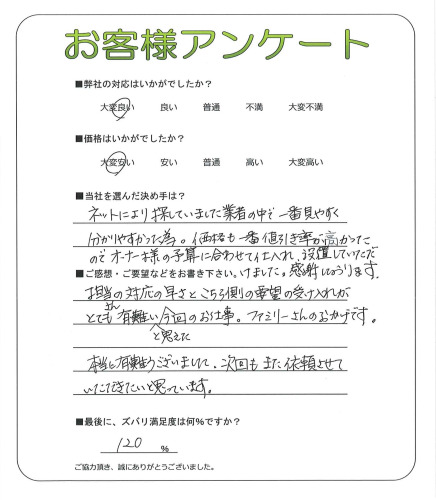 お客様アンケート
■弊社の対応はいかがでしたか？
大変良い 良い 普通 不満 大変不満
■価格はいかがでしたか？
大変安い 安い 普通 高い 大変高い
■当社を選んだ決め手は？
ネットにより探していました業者の中で一番見やすく
分かりやすかった為。価格も一番値引き率が高かった
のでオーナー様の予算に合わせて仕入れ、設置していただ
けました。感謝しております。
■ご感想・ご要望などをお書き下さい。
担当さんの対応の早さとこちら側の要望の受け入れが
とても有難いと思えた今回のお仕事。ファミリーさんのおかげです。
本当に有難うございました。次回もまた依頼させて
いただきたいと思っています。
■最後に、ズバリ満足度は何％ですか？
120 ％
ご協力頂き、誠にありがとうございました。